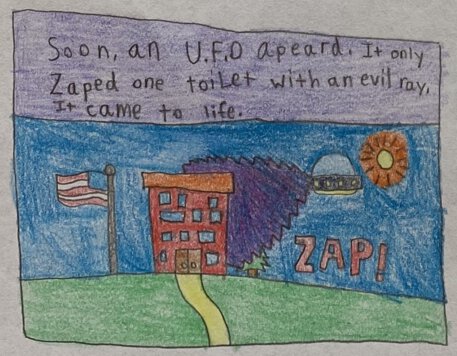 Soon, an U.F.O apeard. It only
Zaped one toilet with an evil ray.
It came to life.
ZAP!